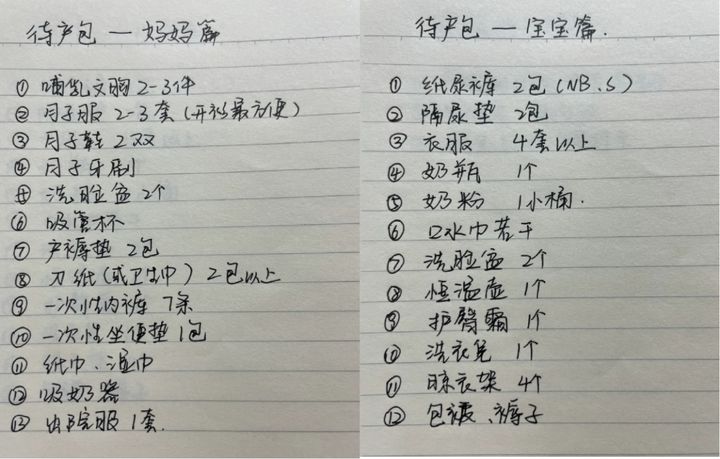 待产包 — 妈妈篇
① 哺乳文胸 2-3件
② 月子服 2-3套(开衫最方便)
③ 月子鞋 2双
④ 月子牙刷
⑤ 洗脸盆 2个
⑥ 吸管杯
⑦ 产褥垫 2包
⑧ 刀纸(或卫生巾) 2包以上
⑨ 一次性内裤 7条
⑩ 一次性坐便垫 1包
⑪ 纸巾、湿巾
⑫ 吸奶器
⑬ 出院服 1套.
待产包 — 宝宝篇.
① 纸尿裤 2包(NB.S)
② 隔尿垫 2包
③ 衣服 4套以上
④ 奶瓶 1个
⑤ 奶粉 1小桶.
⑥ 口水巾若干
⑦ 洗脸盆 2个
⑧ 恒温壶 1个
⑨ 护臀霜 1个
⑩ 洗衣皂 1个
⑪ 晾衣架 4个
⑫ 包被、褥子